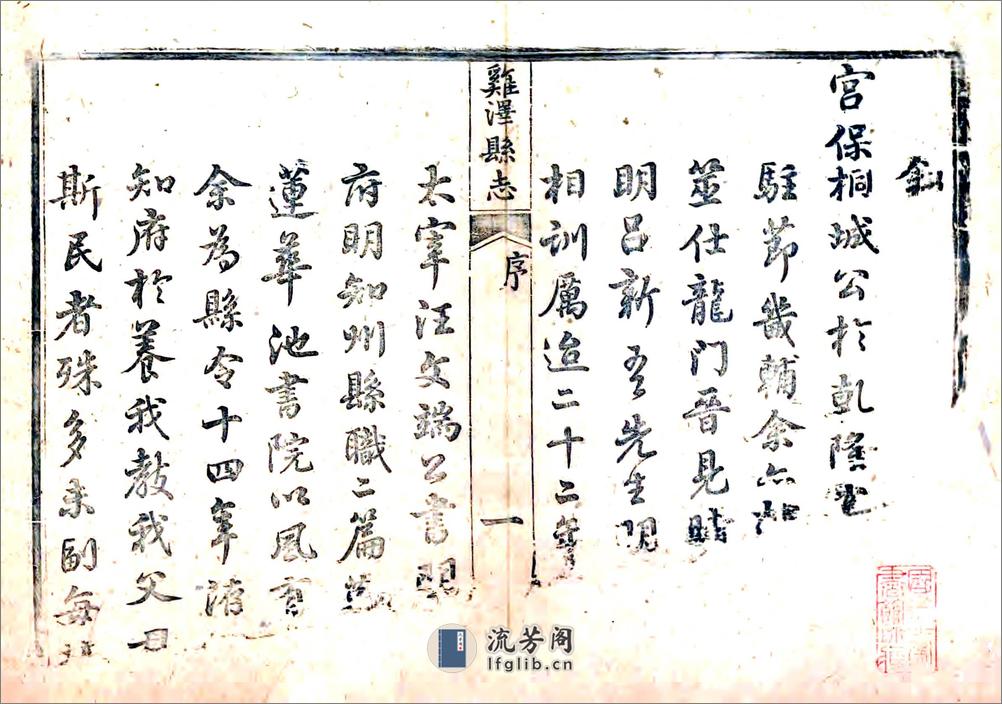 宫保桐城公於乹隆
駐節畿輔余亦
筮仕龍门晉見時
明吕新吾先生明
相訓厲迨二十二年
雞澤縣志
序
一
太宰汪文端公書明
府明知州縣職二篇
蓮華池書院以風有
余為縣令十四年清
知府於養我教我父母
斯民者殊多未副每
流芳阁
lfglib.cn